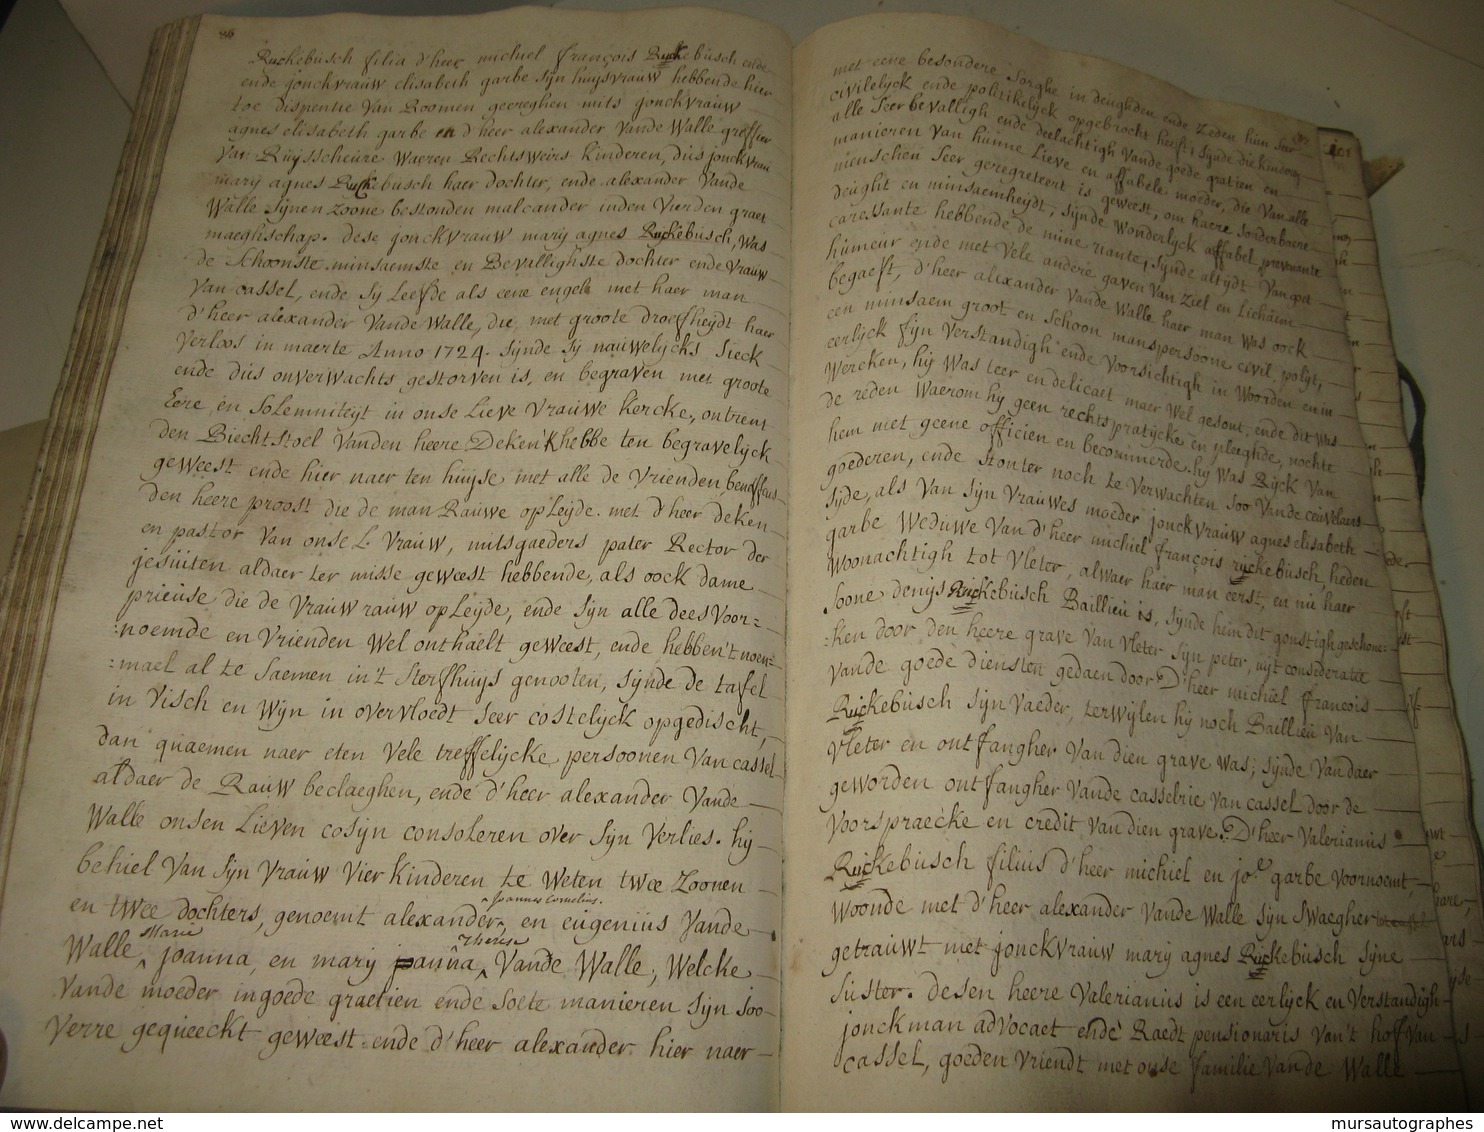 86
Ruckebusch filia d'heer michiel françois Ruckebusch ende
ende jonckvrauw elisabeth garbe sijn huijsvrauw hebbende hier
toe dispensie Van Roomen gecreghen mits jonckvrauw
agnes elisabeth garbe en d'heer alexander Vande Walle greffier
Van Ruijsscheure Waeren Rechtsweirs kinderen, dus jonckvrau
marij agnes Ruckebusch haer dochter, ende alexander Vande
Walle sijnen zoone bestonden malcander inden Vierden graet
maeghschap. dese jonckvrauw marij agnes Ruckebusch, Was
de schoonste minsaemste en Bevallighste dochter ende Vrauw
Van Cassel, ende sij Leefde als eene engel met haer man
d'heer alexander Vande Walle, die met groote droefheijdt haer
Verloos in maerte Anno 1724. sijnde sij nauwelijcks sieck
ende dus onverwachts gestorven is, en begraven met groote
Eere en solemniteijt in onse Lieve Vrauwe kercke, ontrent
den Biechtstoel Vanden heere Deken 'k hebbe ten begravelijck
geweest ende hier naer ten huijse met alle de Vrienden, beneffens
den heere proost die de man Rauwe opLeijde. met d'heer deken
en pastor Van onse L. Vrauw, mitsgaeders pater Rector der
jesuiten aldaer ter misse geweest hebbende, als oock dame
prieuse die de Vrauw rauw opLeijde, ende sijn alle dees Voor=
=noemde en Vrienden Wel onthaelt geweest, ende hebben't noen=
=mael al te saemen in't sterfhuijs genooten, sijnde de tafel
in Visch en Wijn in overvloedt seer costelijck opgedischt,
dan quaemen naer eten Vele treffelijcke persoonen Van Cassel
aldaer de Rauw beclaeghen, ende d'heer alexander Vande
Walle onsen Lieven cosijn consoleren over sijn Verlies. hij
behiel Van sijn Vrauw Vier kinderen te Weten twee zoonen
joannes Cornelius.
en twee dochters, genoemt alexander, en eugenius Vande
Marie Therese
Walle, joanna, en marij joanna Vande Walle, Welcke
Vande moeder in goede gratien ende soete manieren sijn soo
Verre gequeeckt geweest. ende d'heer alexander hier naer
87
met eene besondere sorghe in deughden ende zeden hun sar
civilelijck ende politikelijck opgebrocht heeft; sijnde die kinderen
alle seer bevalligh ende deelachtigh Vande goede gratien en
manieren Van hunne Lieve en affabele moeder, die Van alle
menschen seer geregreteert is geweest, om haere sonderbaere
deught en minsaemheijdt, sijnde Wonderlijck affabel, prevenante
caressante hebbende de mine riante, sijnde altijdt Van goet
humeur ende met Vele andere gaven Van ziel en Lichaem
begaeft, d'heer alexander Vande Walle haer man Was oock
een minsaem groot en schoon manspersoone civil, polijt,
eerlijck fijn Verstandigh ende Voorsichtigh in Woorden en in
Wercken, hij Was teer en delicaet maer Wel gesont, ende dit Was
de reden Waerom hij geen rechtspratijcke en pleeghde, nochte
hem met geene officien en becommerde. hij Was Rijck Van
goederen, ende stonter noch te Verwachten soo Vande ceuvelans
sijde, als Van sijn Vrauwes moeder jonckvrauw agnes elisabeth
garbe Weduwe Van d'heer michiel françois ruckebusch, heden
Woonachtigh tot Vleter, alwaer haer man eerst, en nu haer
soone denijs Ruckebusch Baillieu is, sijnde hem dit gonstigh geschon=
=ken door den heere grave Van Vleter sijn peter, uijt consideratie
Vande goede diensten gedaen door D'heer michiel francois
Ruckebusch sijn Vaeder, terwijlen hij noch Baillieu Van
Vleter en ontfangher Van dien grave was; sijnde Van daer
geworden ontfangher Vande casselrie van cassel door de
Voorspraecke en credit van dien grave. D'heer Valerianus
Ruckebusch filius d'heer michiel en jo.e garbe Voornoemt,
Woonde met d'heer alexander Vande Walle sijn swaegher
getrauwt met jonckvrauw marij agnes Ruckebusch sijne
suster. desen heere Valerianus is een eerlijck en Verstandigh
jonckman advocaet ende Raedt pensionaris van't hof Van
cassel, goeden Vriendt met onse familie Van de Walle
mursautographes